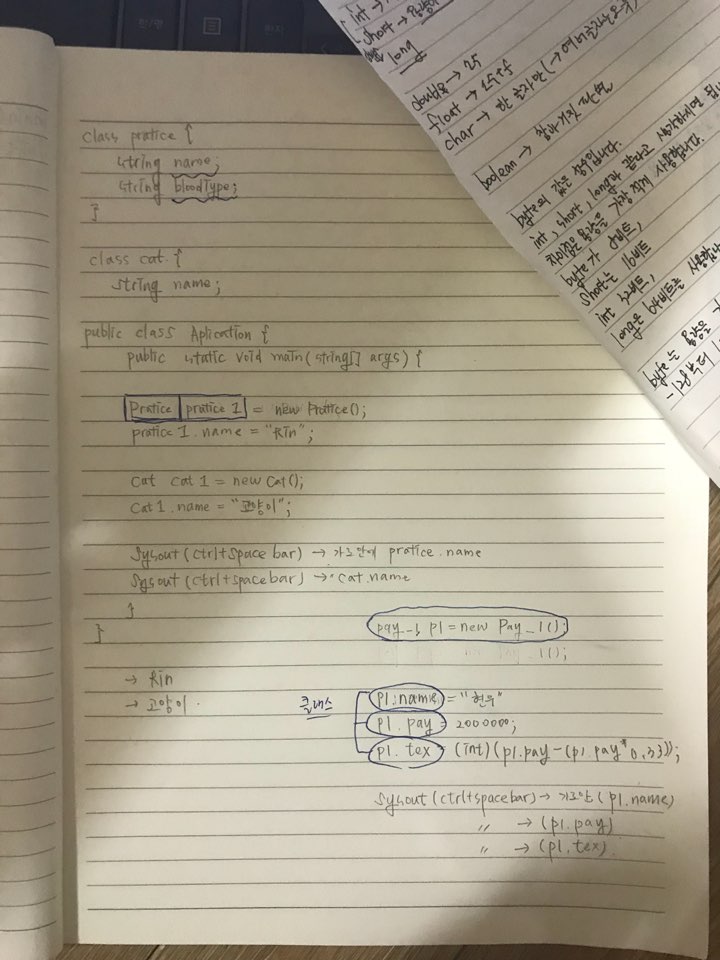 한/영
한자
class pratice {
string name;
string bloodType;
}
class cat {
string name;
public class Aplication {
public static void main(string[] args) {
Pratice pratice 1 = new Pratice();
pratice 1. name = "Rin";
Cat cat 1 = new Cat();
Cat 1. name = "고양이";
Sysout (ctrl+space bar) → 가로안에 pratice. name
Sysout (ctrl+spacebar) → cat. name
}
}
→ Rin
→ 고양이
pay_1 p1 = new Pay_1();
1();
클래스
p1. name = "현우"
p1. pay = 2000000;
p1. tex = (int)(p1.pay-(p1.pay*0.33));
Sysout (ctrl+spacebar) → 가로안 (p1. name)
〃 → (p1. pay)
〃 → (p1. tex)
int →
short →
long
double → 소수
float → 소수
char → 한 글자만
boolean → 참과 거짓 판별
byte의 값은 정수입니다.
int, short, long과 같다고 생각하시면 됩
byte가 8비트,
short는 16비트
int 32비트,
long은 64비트로 사용합니
byte는 용량은
-128부터